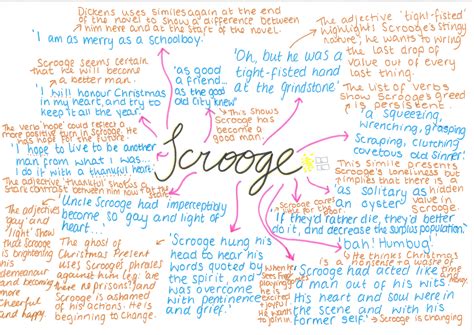 Dickens uses similes again at the end
of the novel to show a difference between
him here and at the start of the novel.
'I am as merry as a schoolboy.'
Scrooge seems certain
that he will become
a better man.
'I will honour Christmas
in my heart, and try to
keep it all the year.'
The verb 'hope' could reflect a
more positive turn in Scrooge. He has
hope for the future.
'I hope to live to be another
man from what I was...
I do it with a thankful heart.'
The adjective 'thankful' shows a
stark contrast between him now
'Uncle Scrooge had imperceptibly
become so gay and light of
heart...'
The adjectives
'gay' and
'light' show
that Scrooge
is brightening
his
demeanour
and becoming
more
cheerful
and happy.
The ghost of
Christmas Present
uses Scrooge's phrases
against him (eg. 'are
there no prisons?') and
Scrooge is ashamed
of his actions. He is
beginning to change.
'as good
a friend...
as the good
old City knew'
This shows
Scrooge has
become a
good man.
Scrooge
'Oh, but he was a
tight-fisted hand
at the grindstone'
The adjective 'tight-fisted'
highlights Scrooge's stingy
nature; he wants to wring
the last drop of
value out of every
last thing.
The list of verbs
show Scrooge's greed
is persistent.
'a squeezing,
wrenching, grasping,
scraping, clutching
covetous old sinner'
This simile presents
Scrooge's loneliness but
implies that there is a
hidden
value in
Scrooge.
'as solitary as
an oyster'
Scrooge cares
for the poor.
'If they'd rather die, they'd better
do it, and decrease the surplus population.'
'Bah! Humbug.'
He thinks Christmas is
nonsense
'Scrooge hung his
head to hear his
own words quoted by
the spirit, and
was overcome
with penitence
and grief.'
When
he is
excited
joyful.
He wants
to join
in.
'Scrooge had acted like
a man out of his wits.
His heart and soul were in
the scene and with his
former self.'
Scrooge is changing